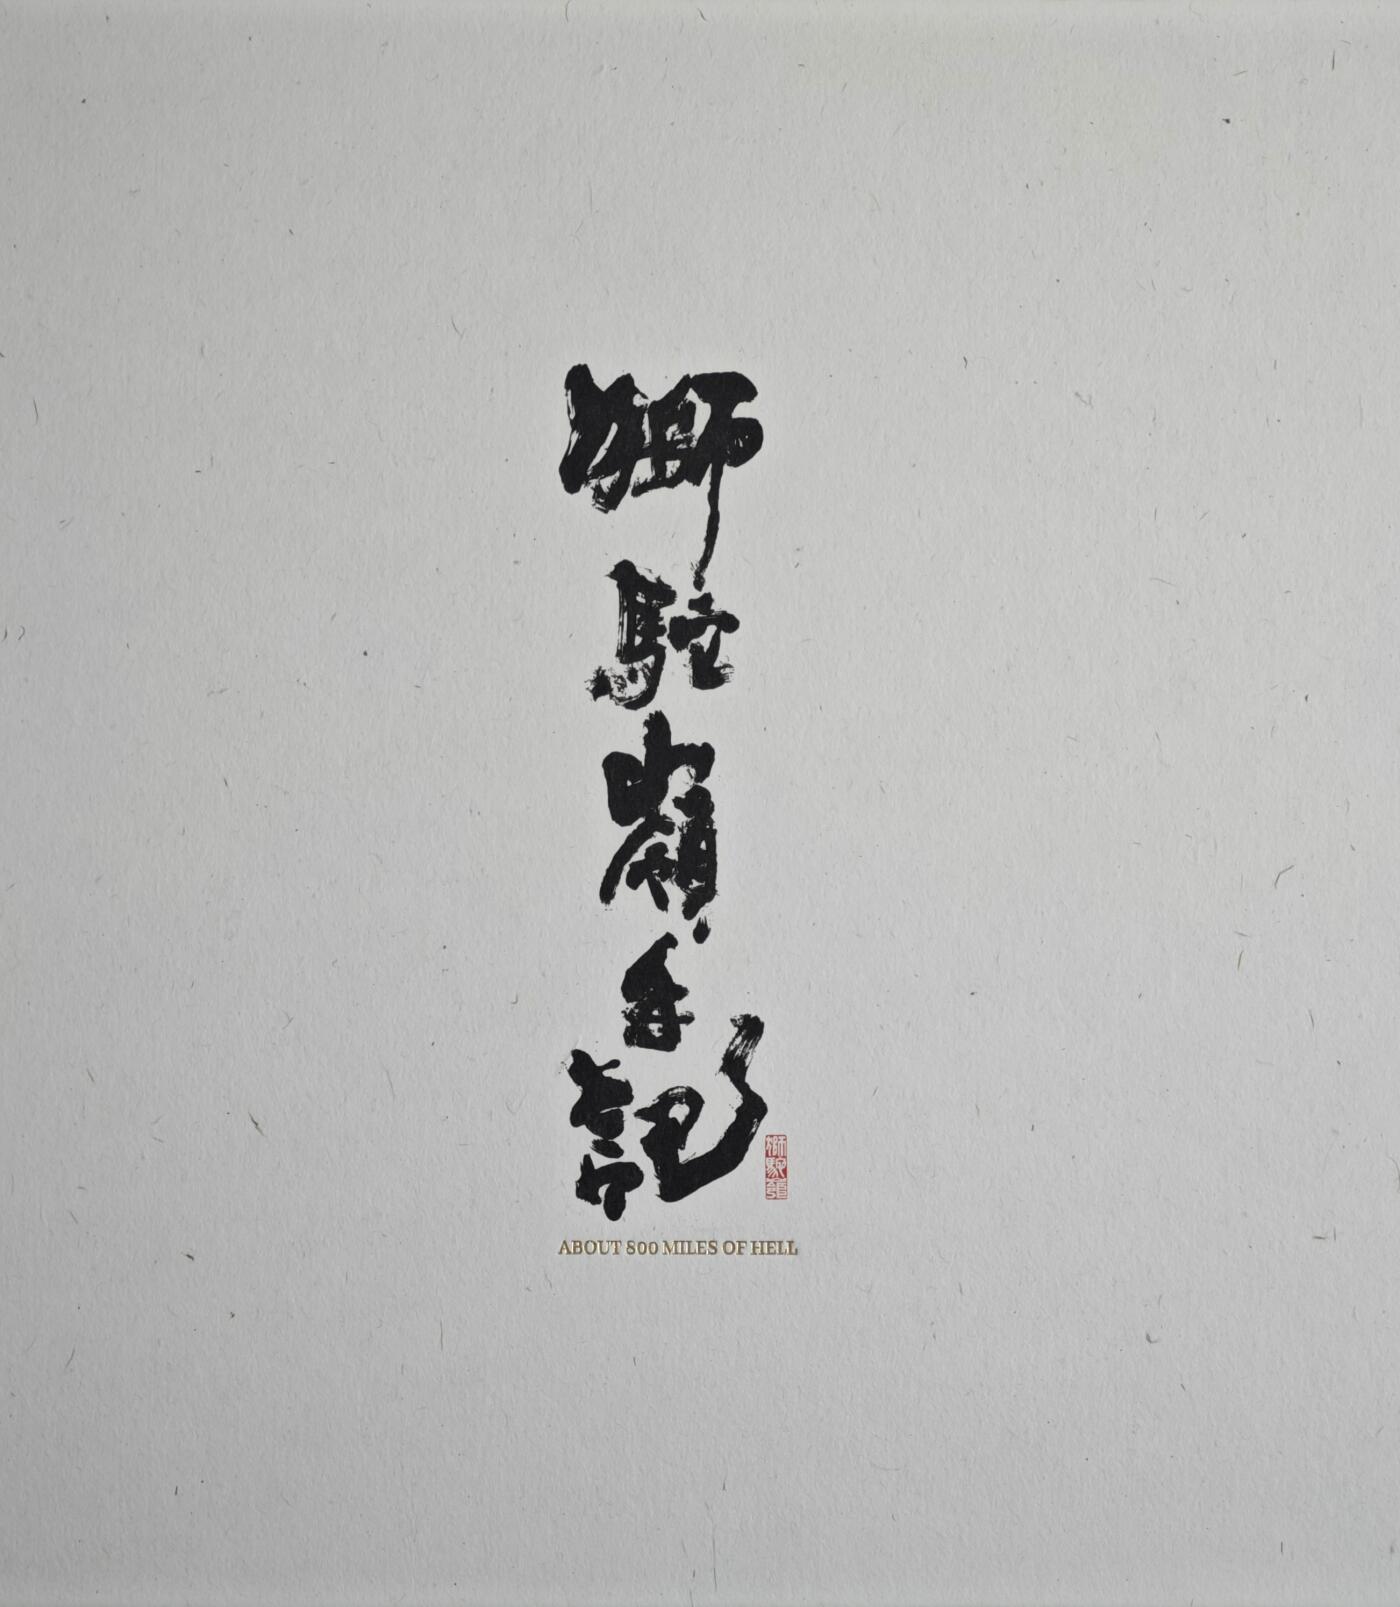 獅駝嶺手記
獅駝嶺
ABOUT 800 MILES OF HELL